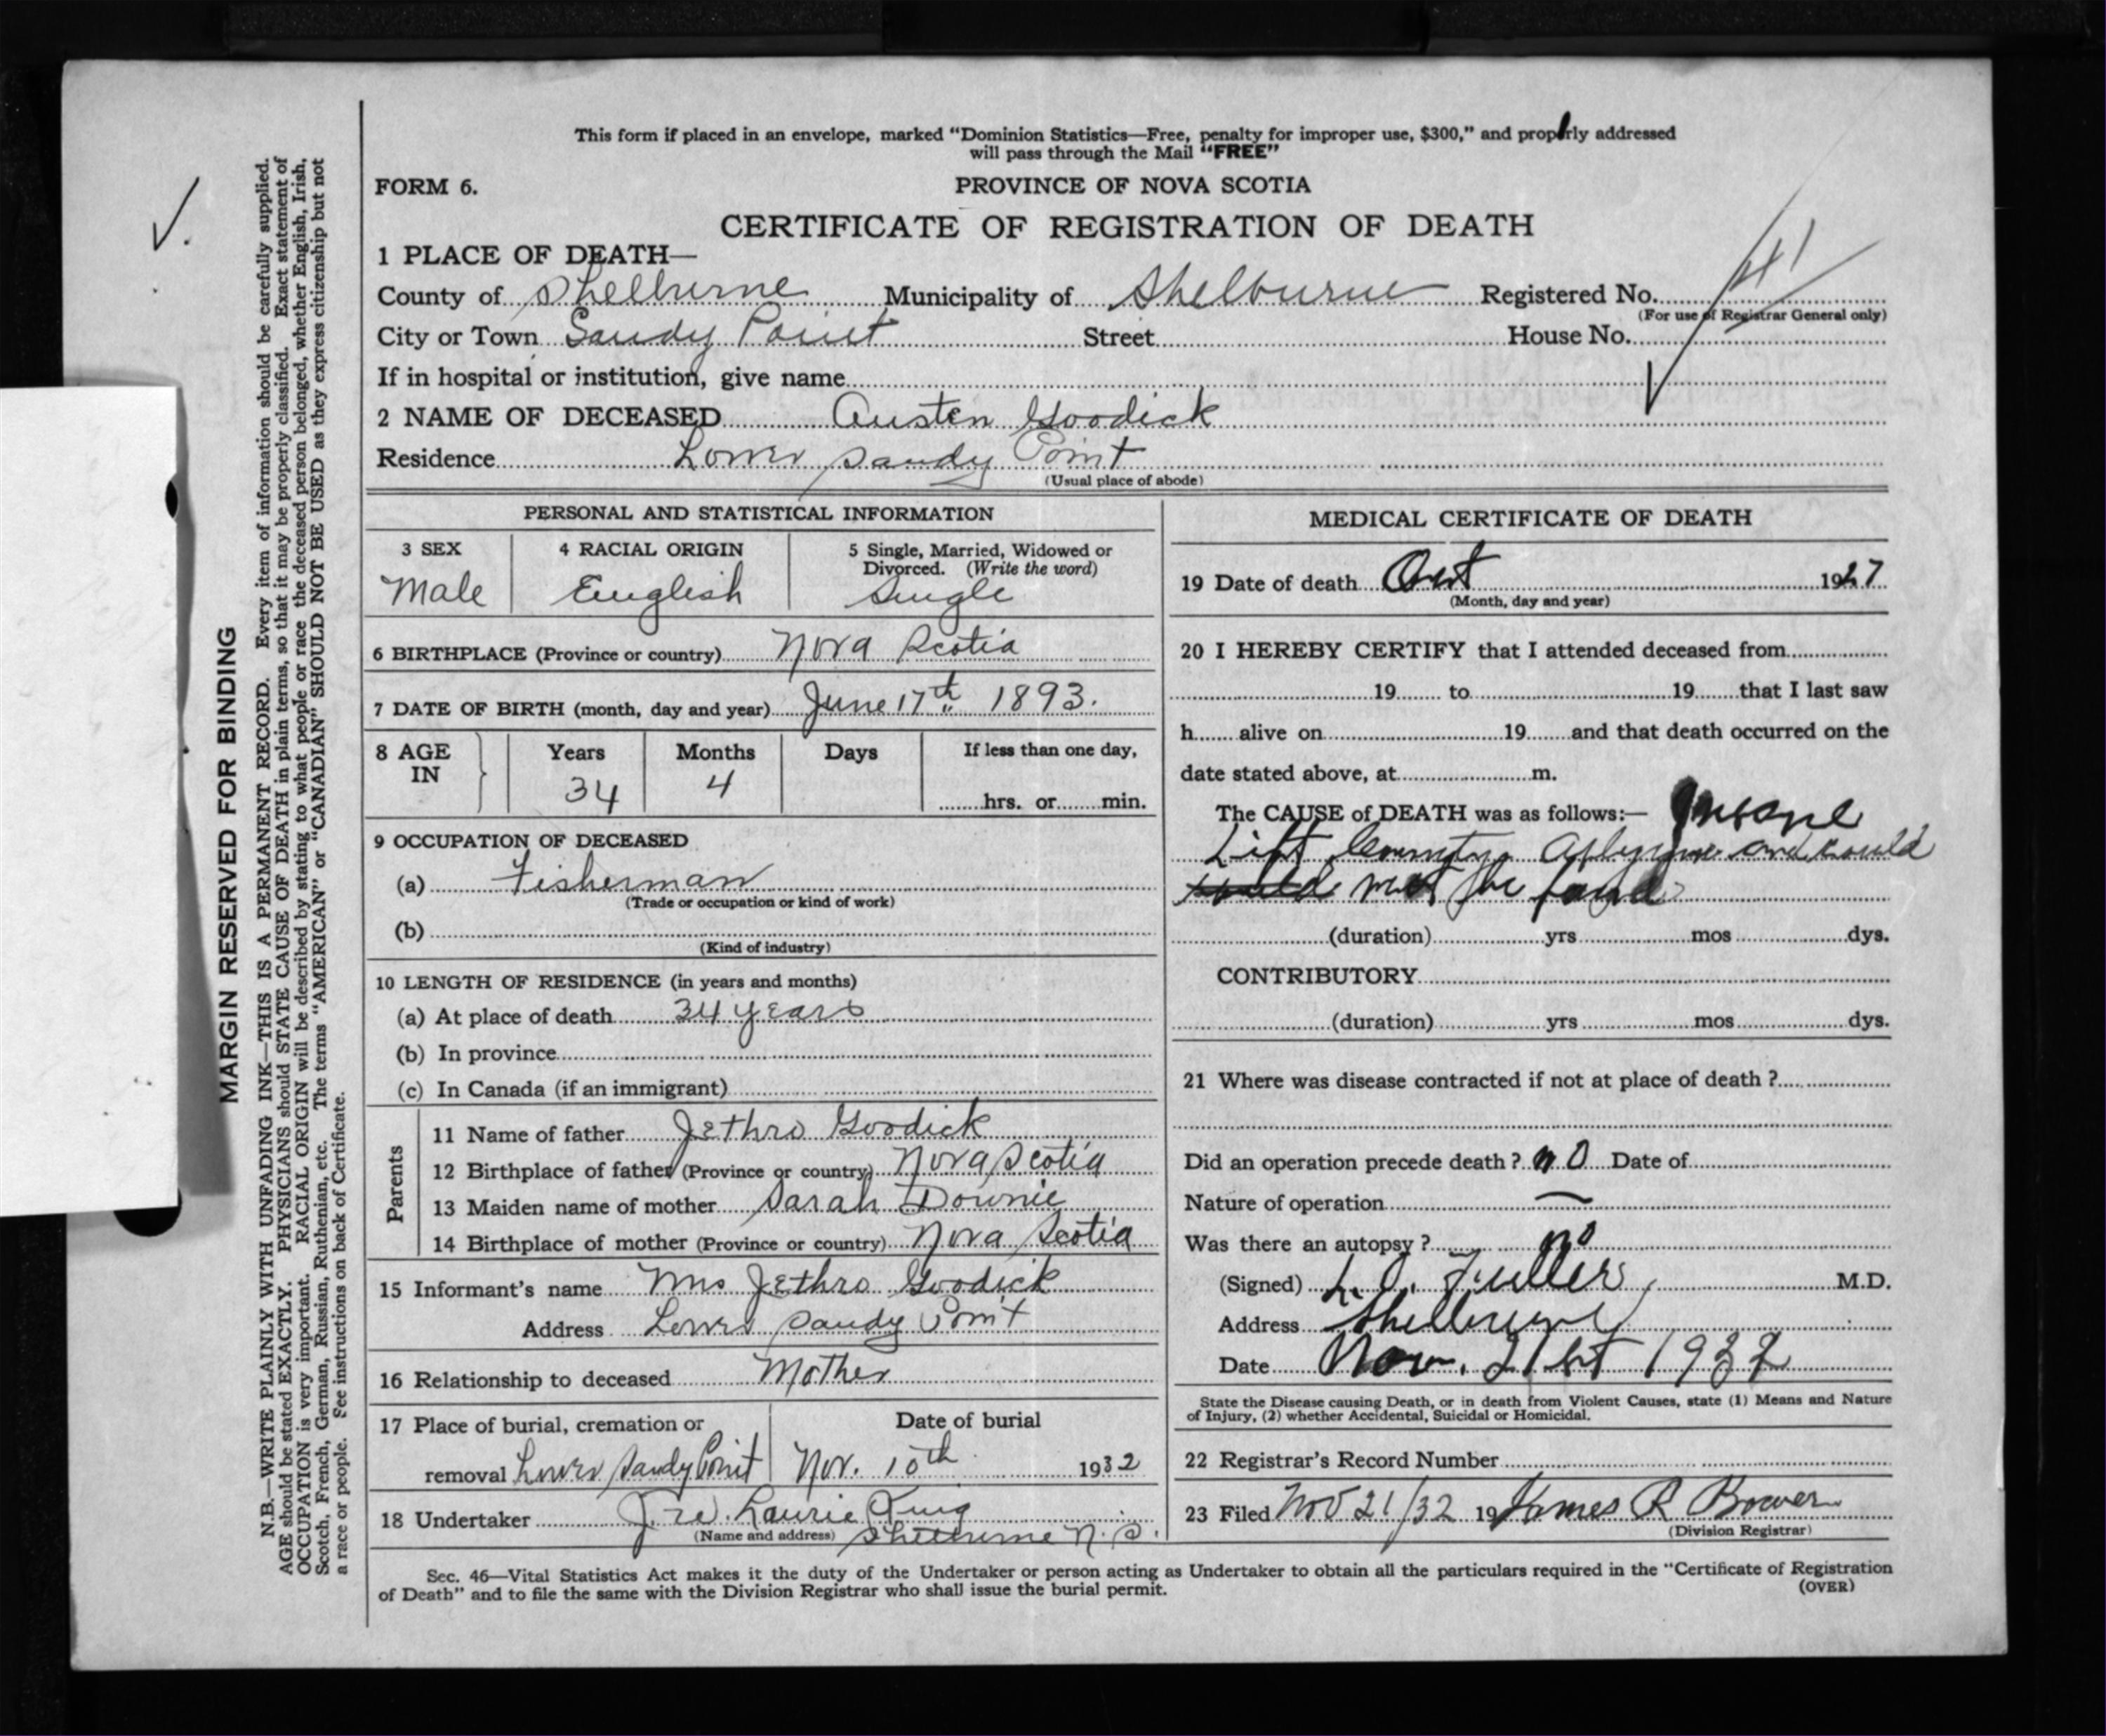 This form if placed in an envelope, marked “Dominion Statistics—Free, penalty for improper use, $300,” and properly addressed
will pass through the Mail “FREE”
FORM 6.
PROVINCE OF NOVA SCOTIA
CERTIFICATE OF REGISTRATION OF DEATH
1 PLACE OF DEATH—
County of Shelburne Municipality of Shelburne Registered No.
(For use of Registrar General only)
City or Town Sandy Point Street House No.
If in hospital or institution, give name
2 NAME OF DECEASED Austen Goodick
Residence Lower Sandy Point
(Usual place of abode)
PERSONAL AND STATISTICAL INFORMATION
3 SEX 4 RACIAL ORIGIN 5 Single, Married, Widowed or
Divorced. (Write the word)
Male English Single
6 BIRTHPLACE (Province or country) Nova Scotia
7 DATE OF BIRTH (month, day and year) June 17th 1893.
8 AGE IN Years Months Days If less than one day,
34 4 hrs. or min.
9 OCCUPATION OF DECEASED
(a) Fisherman
(Trade or occupation or kind of work)
(b)
(Kind of industry)
10 LENGTH OF RESIDENCE (in years and months)
(a) At place of death 34 years
(b) In province
(c) In Canada (if an immigrant)
Parents
11 Name of father Jethro Goodick
12 Birthplace of father (Province or country) Nova Scotia
13 Maiden name of mother Sarah Downie
14 Birthplace of mother (Province or country) Nova Scotia
15 Informant’s name Mrs Jethro Goodick
Address Lower Sandy Point
16 Relationship to deceased Mother
17 Place of burial, cremation or Date of burial
removal Lower Sandy Point Nov. 10th 1932
18 Undertaker Laurie King
(Name and address) Shelburne N.S.
MEDICAL CERTIFICATE OF DEATH
19 Date of death Oct 1927
(Month, day and year)
20 I HEREBY CERTIFY that I attended deceased from
19 to 19 that I last saw
h alive on 19 and that death occurred on the
date stated above, at m.
The CAUSE of DEATH was as follows:— Insane
Left and could
not be found
(duration) yrs mos dys.
CONTRIBUTORY
(duration) yrs mos dys.
21 Where was disease contracted if not at place of death ?
Did an operation precede death ? no Date of
Nature of operation —
Was there an autopsy ? no
(Signed) L. O. Fuller M.D.
Address Shelburne
Date Nov. 21st 1932
State the Disease causing Death, or in death from Violent Causes, state (1) Means and Nature
of Injury, (2) whether Accidental, Suicidal or Homicidal.
22 Registrar’s Record Number
23 Filed Nov 21/32 19 James R Bower
(Division Registrar)
Sec. 46—Vital Statistics Act makes it the duty of the Undertaker or person acting as Undertaker to obtain all the particulars required in the “Certificate of Registration
of Death” and to file the same with the Division Registrar who shall issue the burial permit.
(OVER)
MARGIN RESERVED FOR BINDING
N.B.—WRITE PLAINLY WITH UNFADING INK—THIS IS A PERMANENT RECORD. Every item of information should be carefully supplied.
AGE should be stated EXACTLY. PHYSICIANS should STATE CAUSE OF DEATH in plain terms, so that it may be properly classified. Exact statement of
OCCUPATION is very important. RACIAL ORIGIN will be described by stating to what people or race the deceased person belonged, whether English, Irish,
Scotch, French, German, Russian, Ruthenian, etc. The terms “AMERICAN” or “CANADIAN” SHOULD NOT BE USED as they express citizenship but not
a race or people. See instructions on back of Certificate.